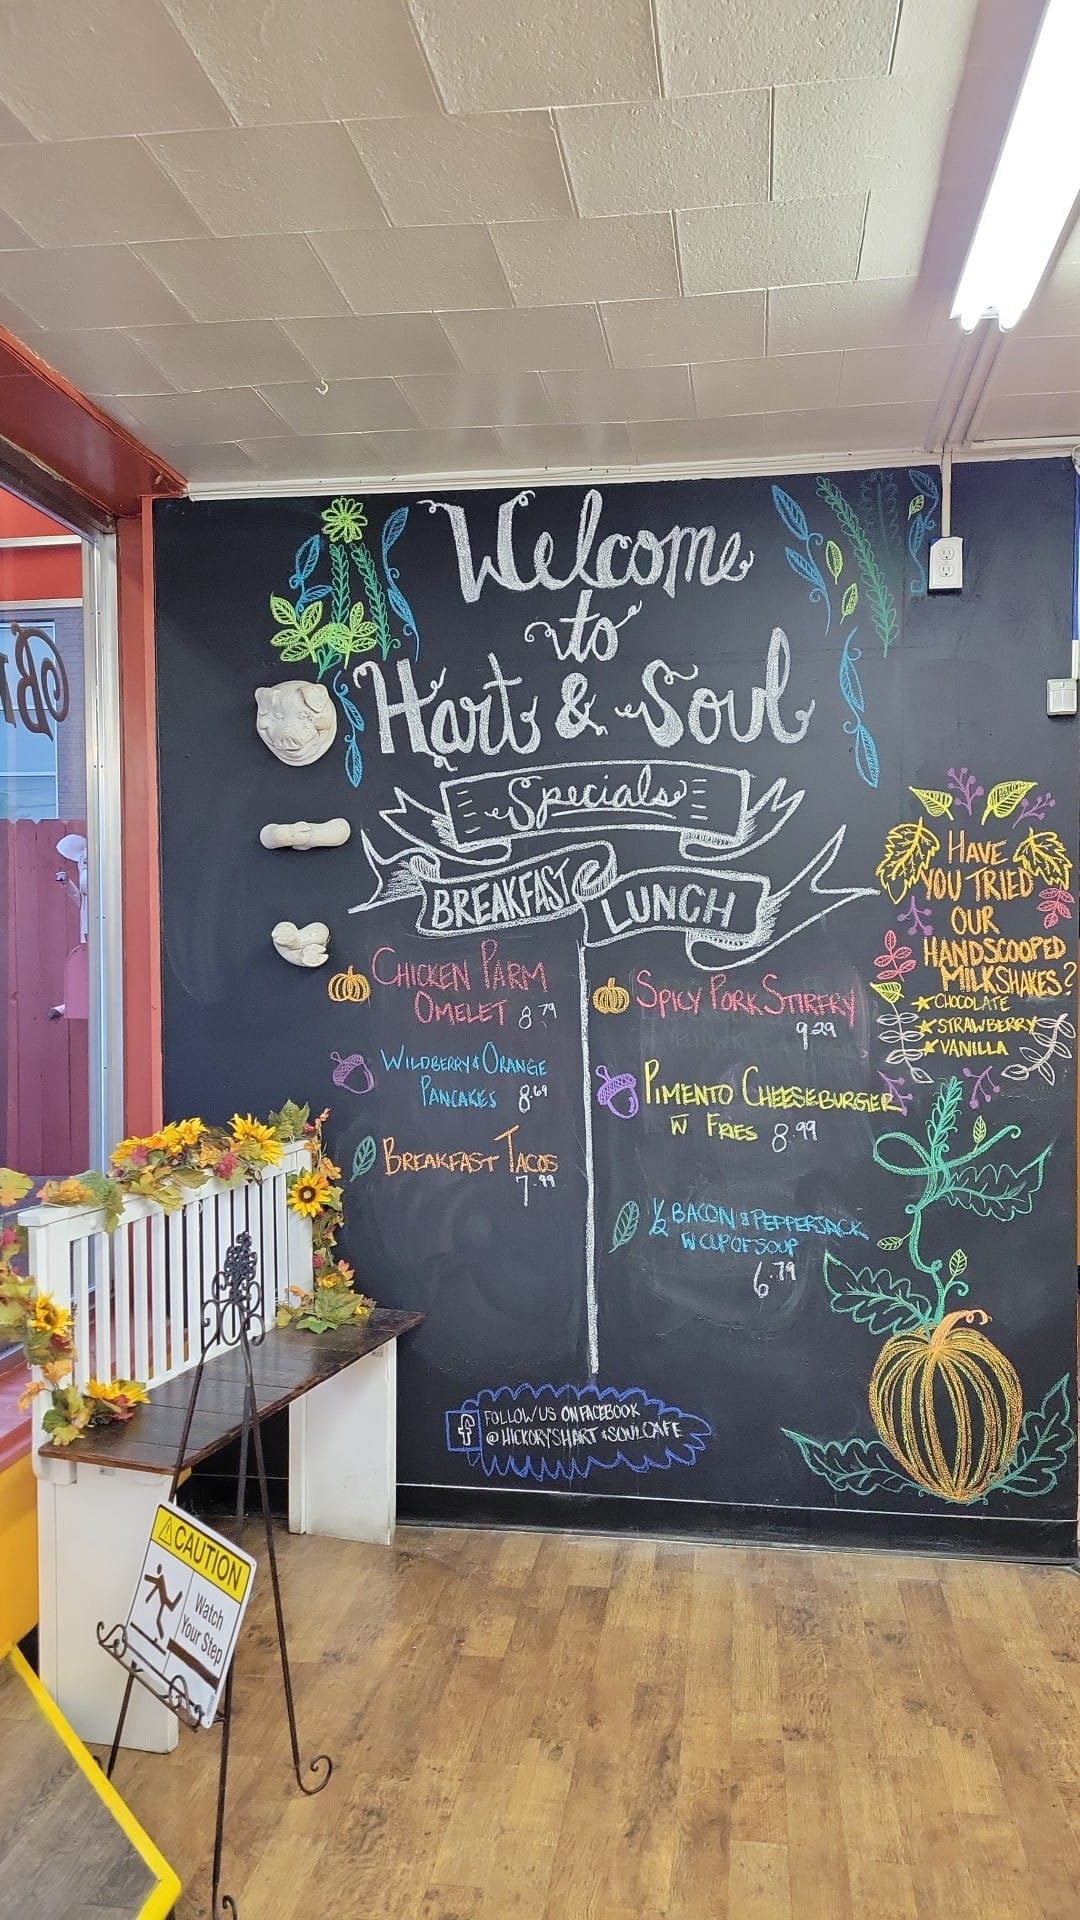 Welcome
to
Hart & Soul
Specials
BREAKFAST
LUNCH
CHICKEN PARM
OMELET 8.79
WILDBERRY & ORANGE
PANCAKES 8.69
BREAKFAST TACOS
7.99
SPICY PORK STIRFRY
9.29
PIMENTO CHEESEBURGER
W FRIES 8.99
1/2 BACON & PEPPERJACK
W CUP OF SOUP
6.79
HAVE
YOU TRIED
OUR
HANDSCOOPED
MILKSHAKES?
CHOCOLATE
STRAWBERRY
VANILLA
f FOLLOW US ON FACEBOOK
@HICKORY'SHART&SOULCAFE
CAUTION
Watch
Your Step